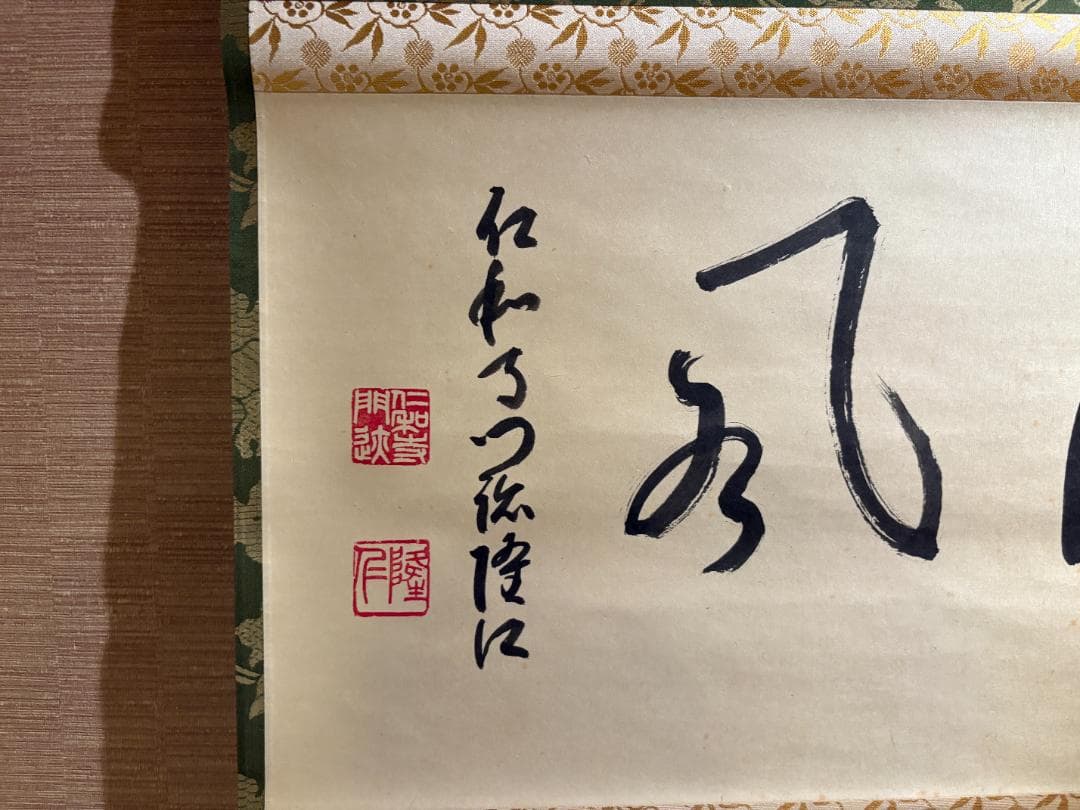 風
仁和寺門跡隆仁
仁和寺
門迹
隆仁